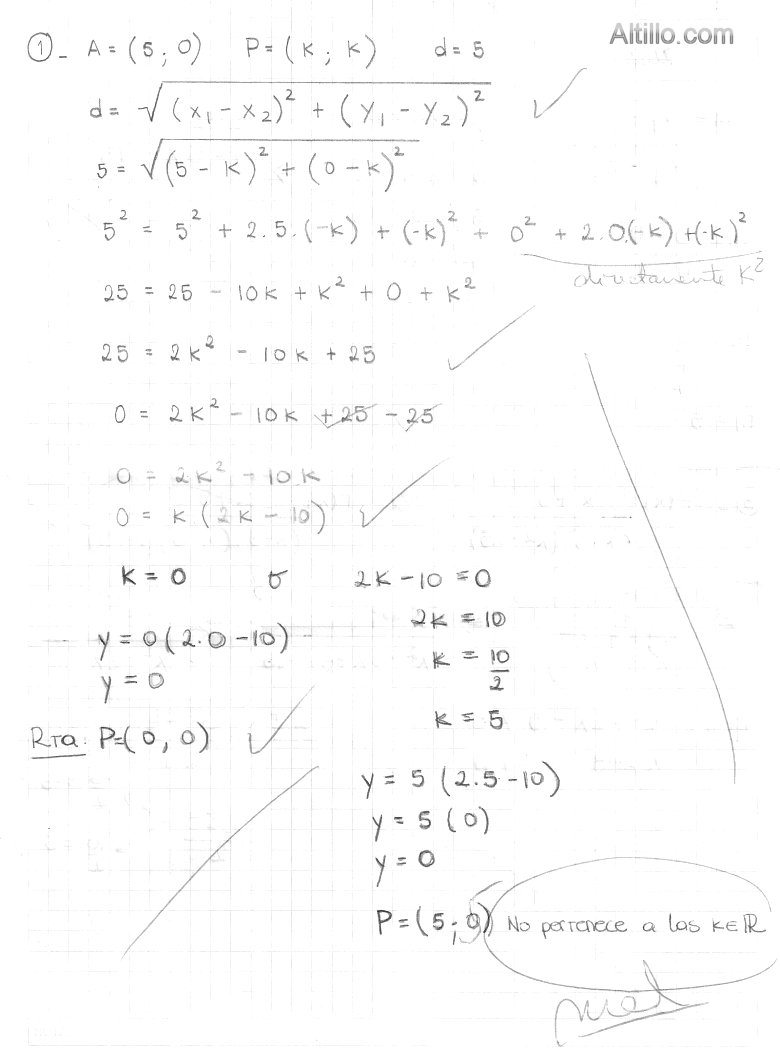 Altillo.com
①- A = (5; 0) P = (K; K) d = 5
d = √((x₁ - x₂)² + (y₁ - y₂)²)
5 = √((5 - K)² + (0 - K)²)
5² = 5² + 2.5.(-K) + (-K)² + 0² + 2.0.(-K) + (-K)²
directamente K²
25 = 25 - 10K + K² + 0 + K²
25 = 2K² - 10K + 25
0 = 2K² - 10K + 25 - 25
0 = 2K² - 10K
0 = K (2K - 10)
K = 0 ó 2K - 10 = 0
2K = 10
y = 0 (2.0 - 10)
K = 10/2
y = 0
K = 5
Rta: P = (0, 0)
y = 5 (2.5 - 10)
y = 5 (0)
y = 0
P = (5; 0) No pertenece a las K∈ℝ
5
mal